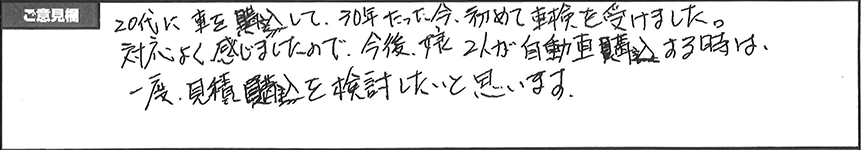 ご意見欄
20代に車を購入して、30年たった今、初めて車検を受けました。
対応よく感じましたので、今後、娘2人が自動車購入する時は、
一度、見積購入を検討したいと思います。